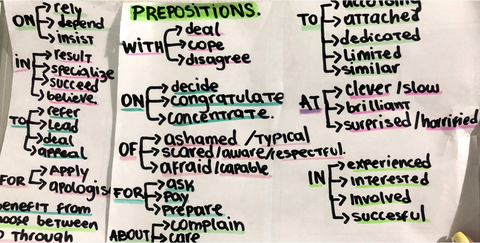 rely
ON depend
insist
result
IN specialize
succeed
believe
refer
TO lead
deal
appeal
FOR apply
apologis
benefit from
choose between
through
PREPOSITIONS.
deal
WITH cope
disagree
decide
ON congratulate
concentrate.
ashamed / typical
OF scared/aware/respectful.
afraid/capable
ask
FOR pay
prepare
complain
ABOUT care
according
TO attached
dedicated
Limited
similar
clever / slow
AT brilliant
surprised / horrified
experienced
IN interested
Involved
succesful